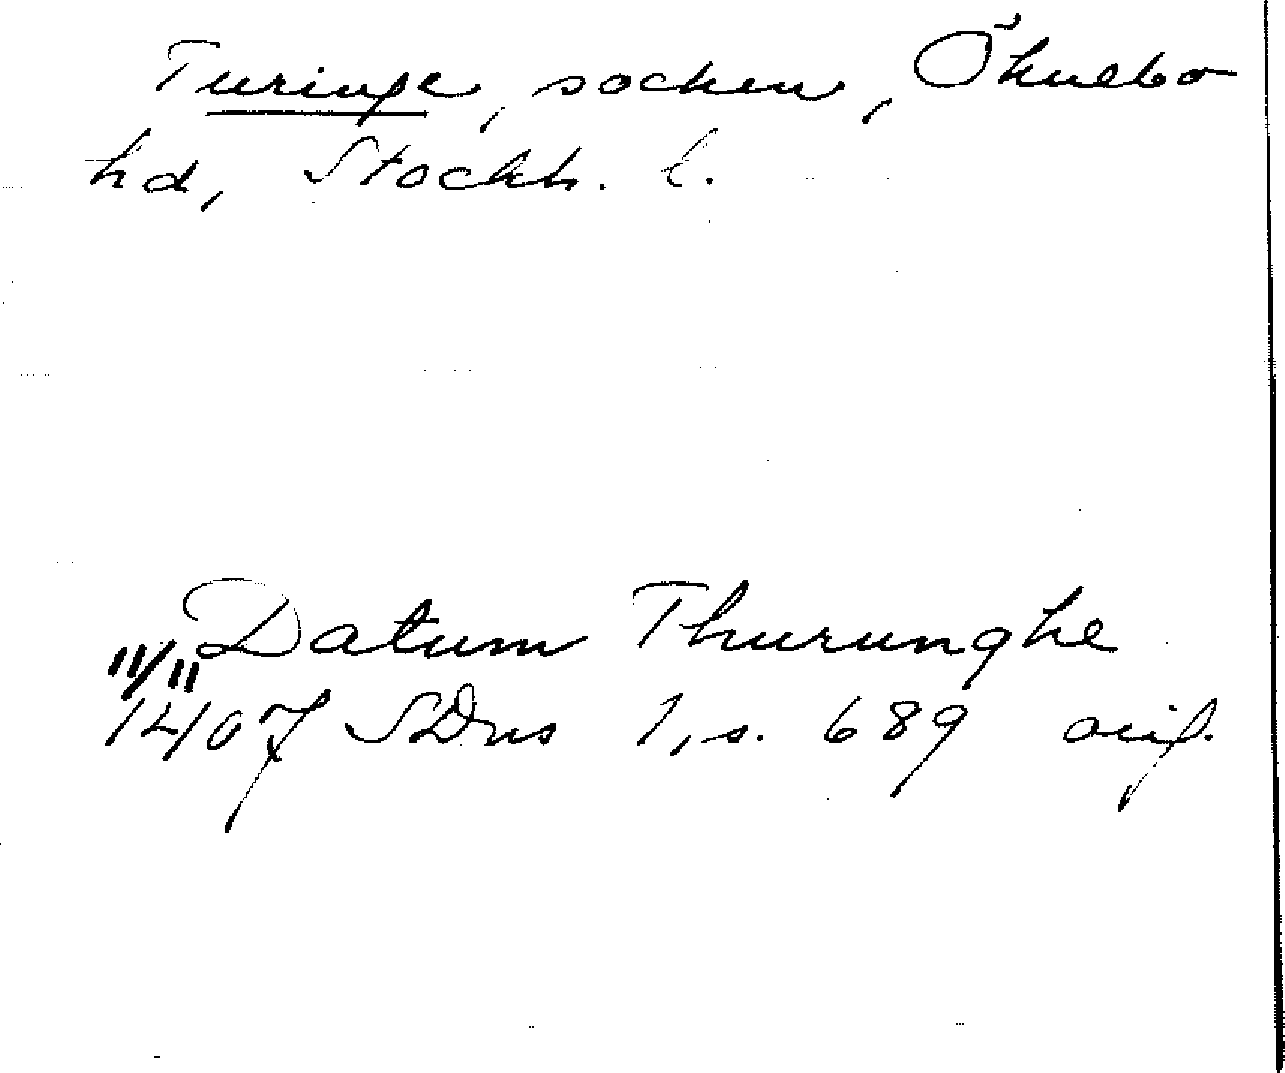 Turinge, socken, Öknebo
hd, Stockh. l.
Datum Thurunghe
11/11
1407 SDns 1, s. 689 orig.